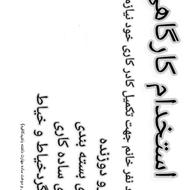 استخدام کارگاهی
نفر خانم جهت تکمیل کادر کاری خود
و دوزنده
ی بسته بندی
ی ساده کاری
گردخیاط و خیاط